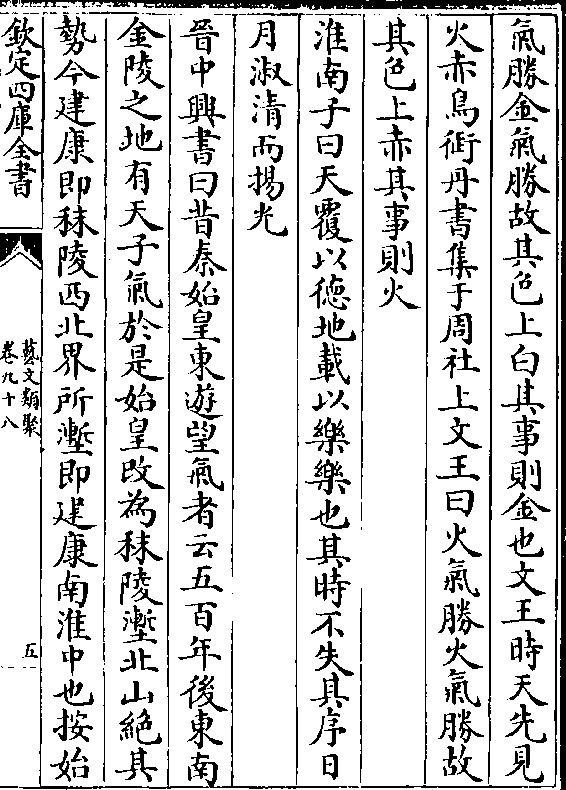 氣勝金氣勝故其色上白其事則金也文王時天先見
火赤鳥銜丹書集于周社上文王曰火氣勝火氣勝故
其色上赤其事則火
淮南子曰天覆以德地載以樂樂也其時不失其序日
月淑清而揚光
晉中興書曰昔秦始皇東遊望氣者云五百年後東南
金陵之地有天子氣於是始皇改為秣陵壍北山絶其
勢今建康即秣陵西北界所壍即建康南淮中也按始
欽定四庫全書
藝文類聚
卷九十八
五